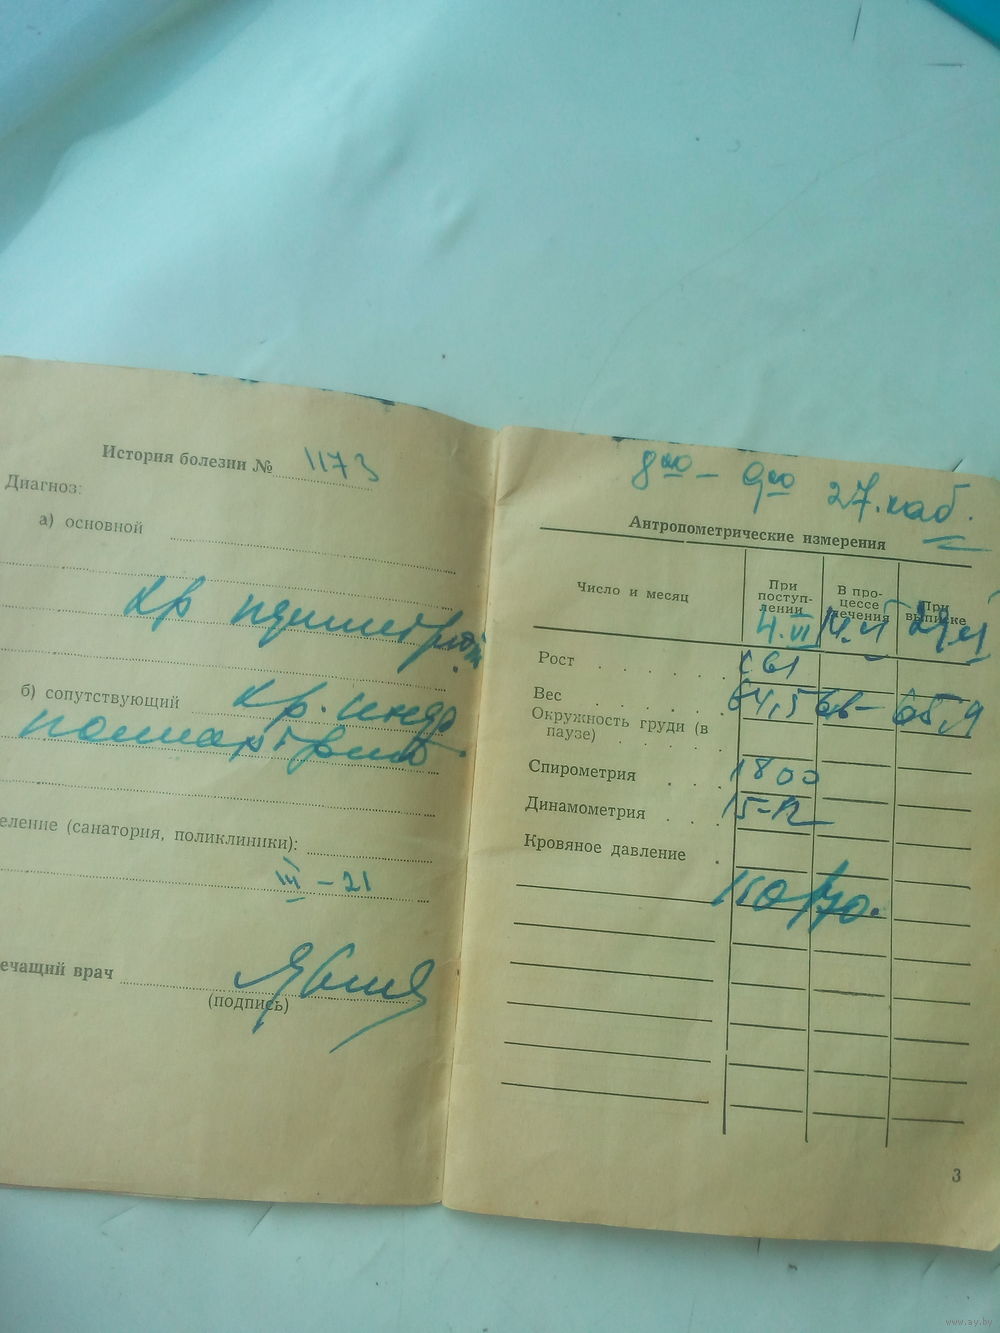 История болезни № 1173
Диагноз:
а) основной
хр
б) сопутствующий хр.
еление (санатория, поликлиники):
III – 21
ечащий врач
(подпись)
8⁰⁰ – 9⁰⁰ 27.каб.
Антропометрические измерения
Число и месяц
При поступ-
лении
В про-
цессе
лечения
При
выписке
4.VI
Рост 161
Вес 64,5 66– 65,9
Окружность груди (в
паузе)
Спирометрия 1800
Динамометрия 15–12
Кровяное давление
110/70.
3
www.ay.by